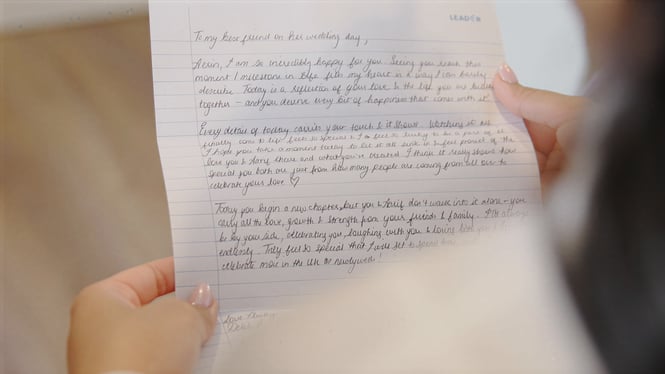 LEADER
To my best friend on her wedding day,
I am so incredibly happy for you. Seeing you reach this
moment / milestone in life fills my heart in a way I can barely
describe. Today is a reflection of your love & the life you are building
together - and you deserve every bit of happiness that comes with it
Every detail of today carries your touch & it shows. Watching it all
finally come to life feels so special & I feel so lucky to be a part of it
I hope you take a moment today to let it all sink in & feel proud of the
love you & share and what you've created. I think it really shows how
special you both are just from how many people are coming from all over to
celebrate your love ♡
Today you begin a new chapter, but you & don't walk into it alone - you
carry all the love, growth & strength from your friends & family. I'll always
be by your side, celebrating you, laughing with you & loving you
endlessly. Truly feel so special that I will get to spend
celebrate more in the UK as newlyweds!
Love